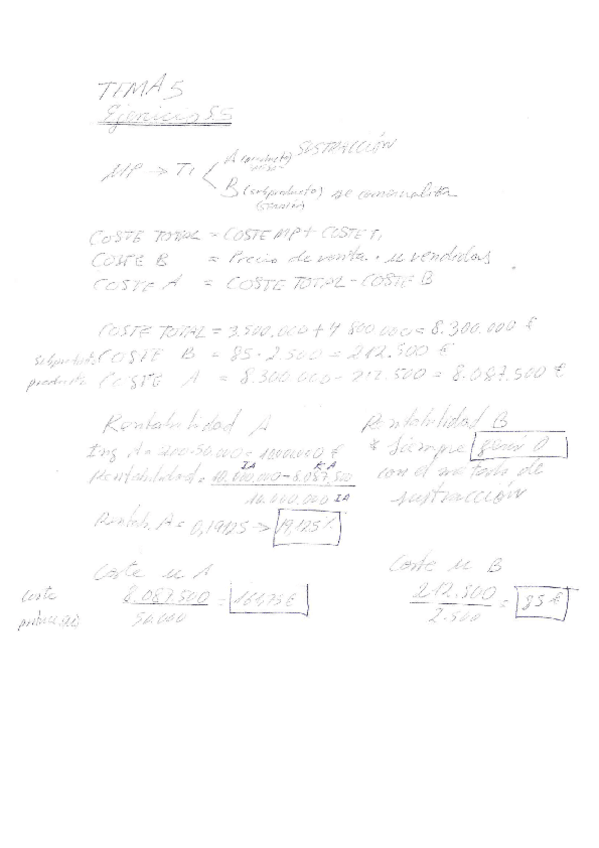 TEMA 5
Ejercicio 5.5
MP → T1
A (producto) SUSTRACCIÓN
B (subproducto) se comercializa
COSTE TOTAL = COSTE MP + COSTE T1
COSTE B = Precio de venta · u vendidas
COSTE A = COSTE TOTAL - COSTE B
COSTE TOTAL = 3.500.000 + 4 800 000 = 8.300.000 €
subproducto COSTE B = 85 · 2.500 = 212.500 €
producto COSTE A = 8.300.000 - 212.500 = 8.087.500 €
Rentabilidad A
Ing A = 200·50.000 = 10000000 €
Rentabilidad = 10.000.000 - 8.087.500
IA
10.000.000 IA
Rentab. A = 0,19125 → 19,125%
Rentabilidad B
* Siempre será 0
con el método de
sustracción
Coste u A
Coste
8.087.500 = 161,75 €
50.000
Coste u B
212.500 = 85 €
2.500